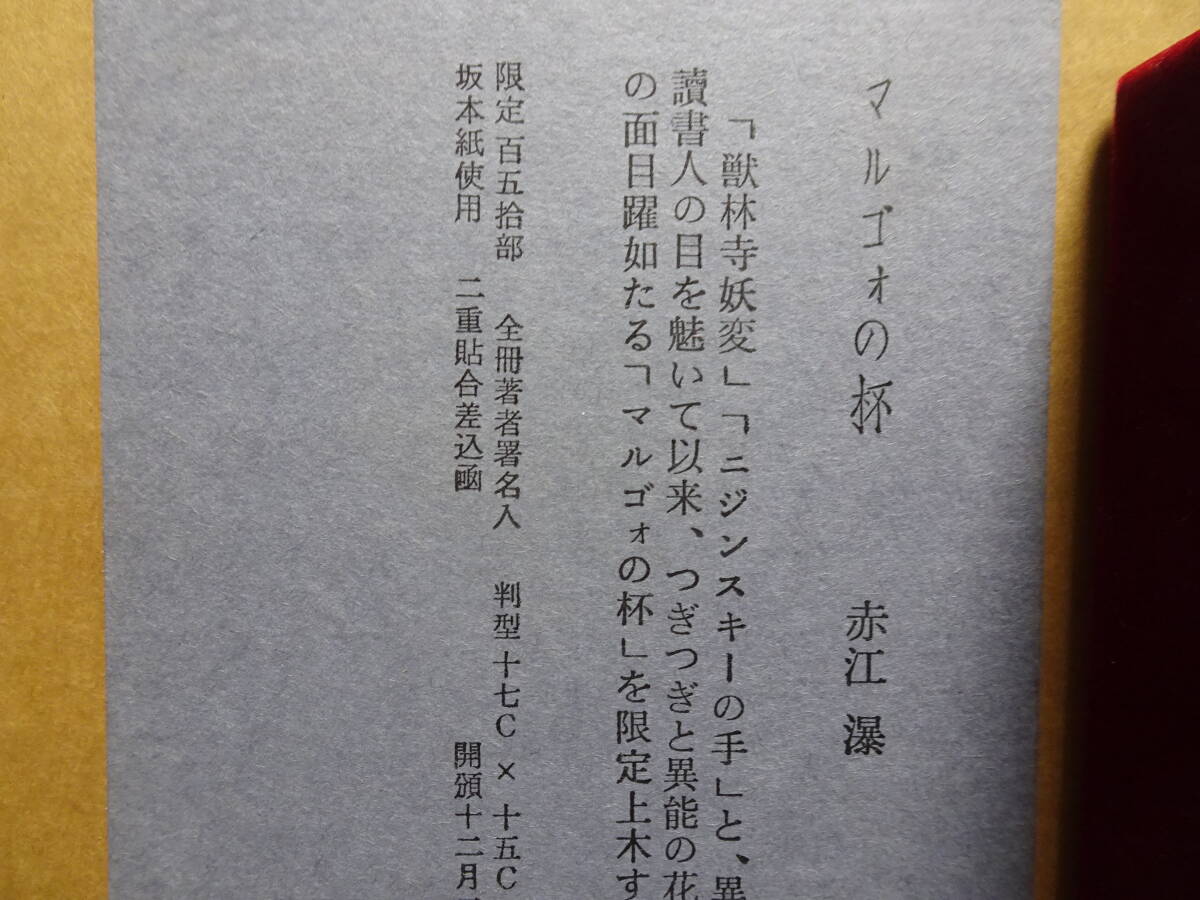 マルゴォの杯　赤江瀑
「獣林寺妖変」「ニジンスキーの手」と、異
讀書人の目を魅いて以来、つぎつぎと異能の花
の面目躍如たる「マルゴォの杯」を限定上木す
限定百五拾部　全冊著者署名入　判型十七C×十五C
坂本紙使用　二重貼合差込凾　開頒十二月